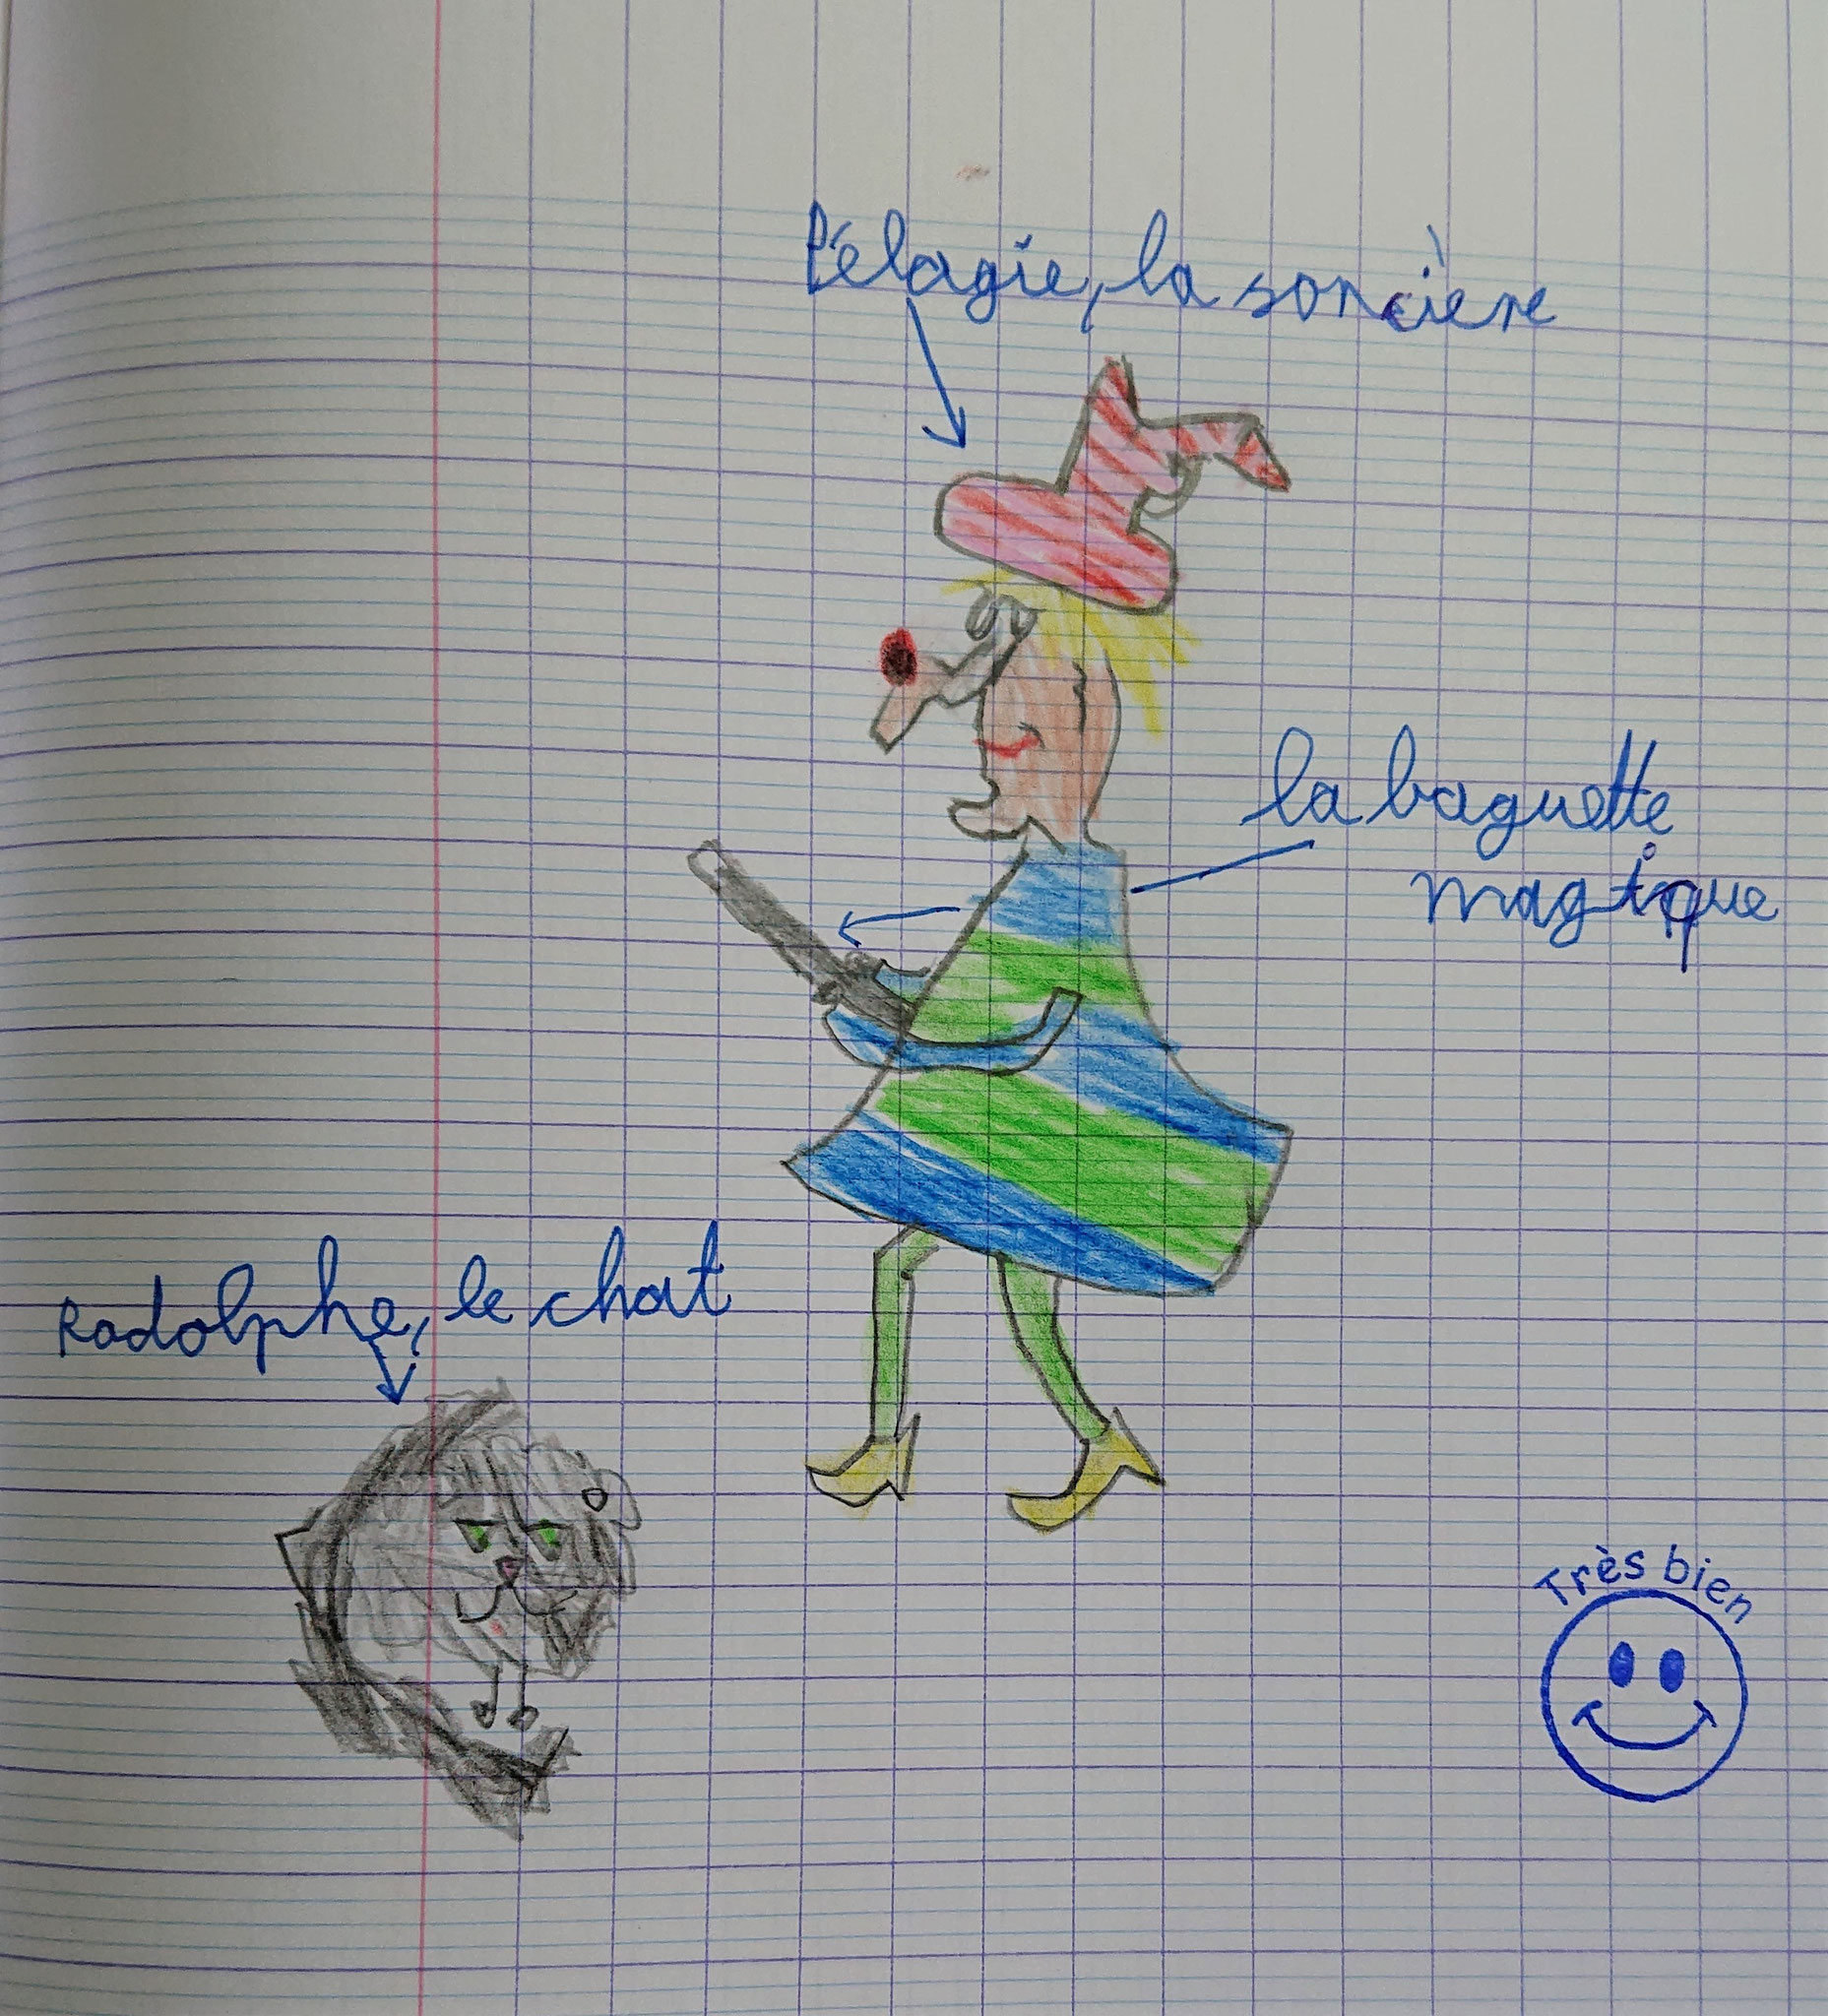 Pélagie, la sorcière
la baguette
magique
Radolphe, le chat
Très bien